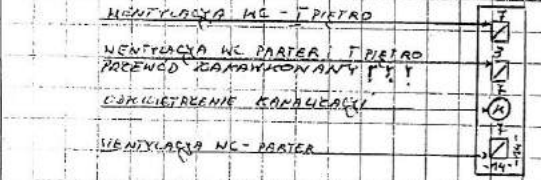 WENTYLACJA WC - I PIĘTRO
7
WENTYLACJA WC PARTER I I PIĘTRO
3
PRZEWÓD ZAMAWKOWANY ! ? !
7
ODPOWIETRZENIE KANALIZACJI
K
7
WENTYLACJA WC - PARTER
-14-
-14-